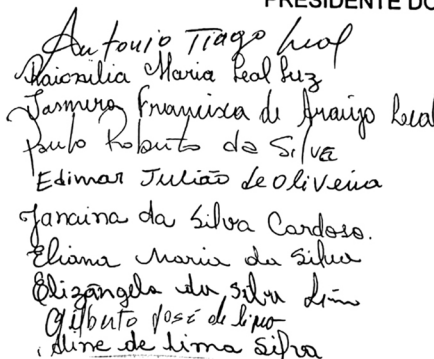 PRESIDENTE DO
Antonio Tiago Leal
Maria Leal Luz
Francisca de Araujo Leal
Paulo Roberto da Silva
Edimar Julião de Oliveira
Janaina da Silva Cardoso.
Eliana Maria da Silva
Elizângela da Silva Lima
Gilberto José de lima
Aline de Lima Silva